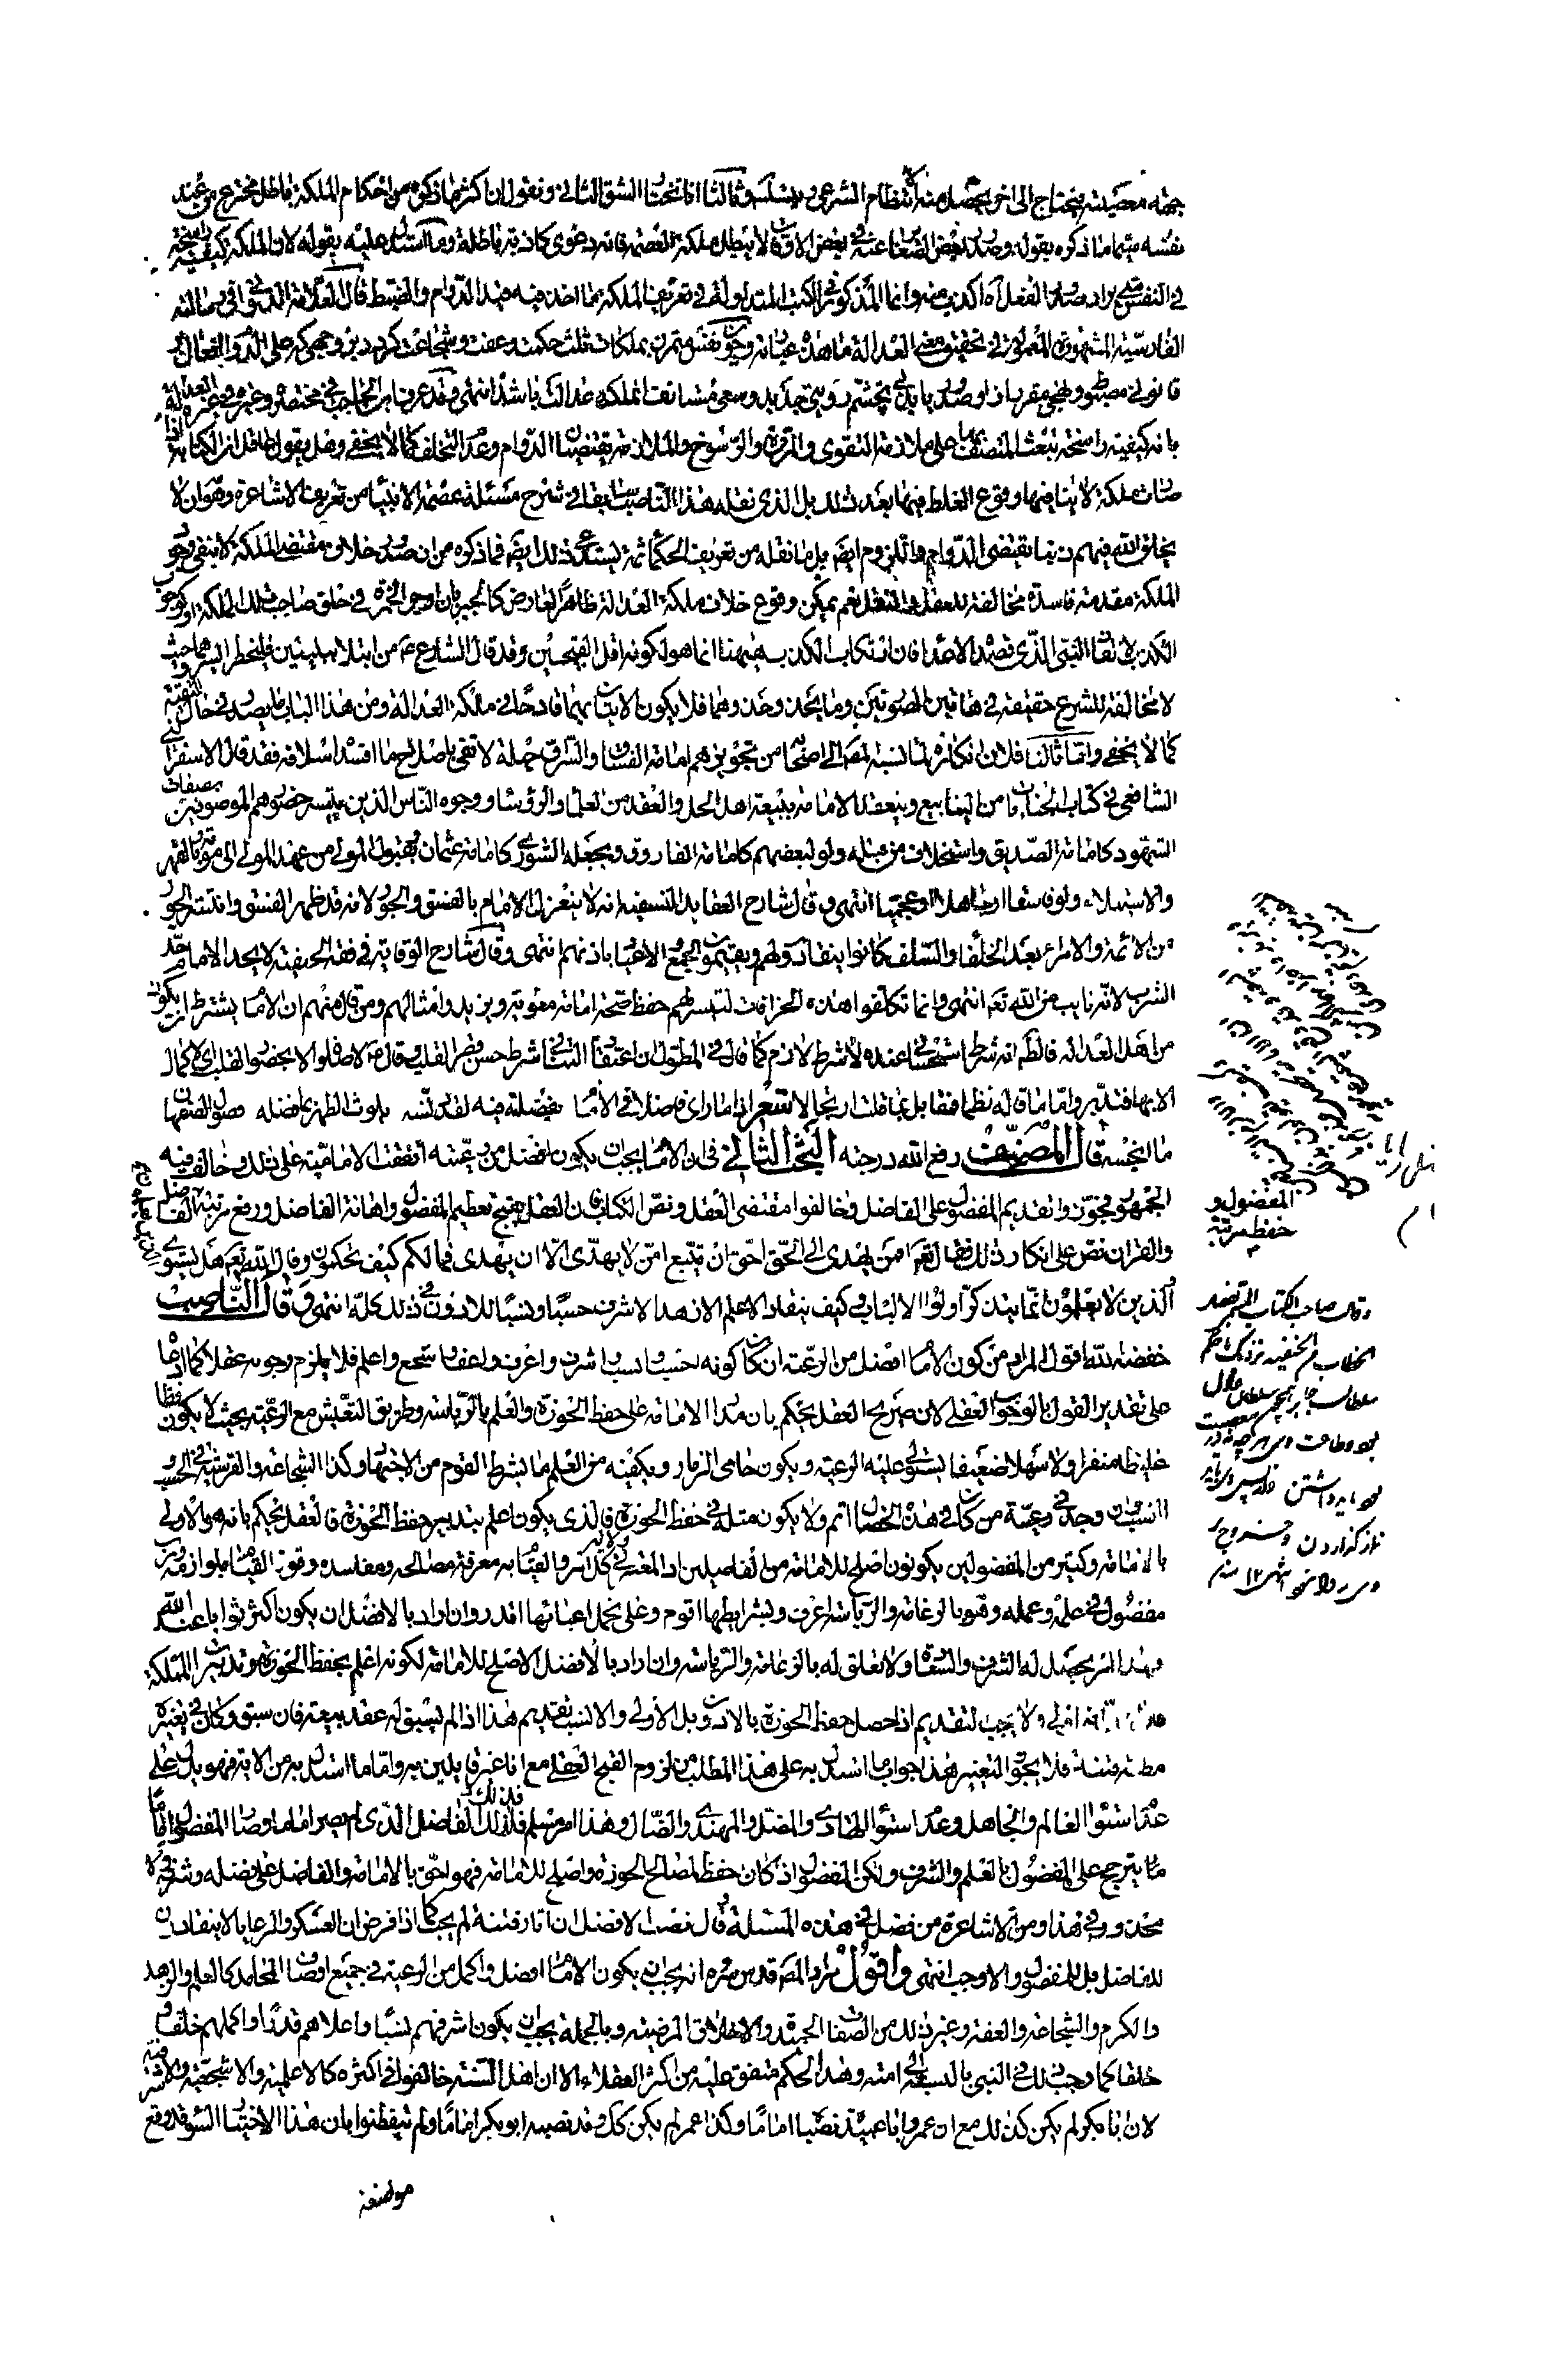 جهة معصيته فيحتاج الى اخر يحصل منه الانتظام الشرعي ويتسلسل وثالثا انا نختار الشق الثاني ونقول ان اكثر ما ذكره من احكام الملكة باطل مخترع من عند
نفسه منها ما ذكره بقوله وصدور بعض الصغائر عنه في بعض الاوقات لا يبطل ملكة العصمة فانه دعوى كاذبة باطلة وما استدل عليه بقوله لان الملكة كيفية راسخة
في النفس متى يراد صدور الفعل اه اكذب منه وانما المذكور في الكتب المتداولة في تعريف الملكة ما اخذ فيه قيد الدوام والضبط قال العلامة الدواني في رسالته
الفارسية المشهورة المعمولة في تحقيق معنى العدالة ما هذه عبارته وچون نفس متمرن بملكات ثلث حكمت وعفت وشجاعت كردد بر وجهى كه على الدوام افعال بر
قانونى مضبوط ونهجى مقرر از او صدور يابد بى تجشم رويتى جديد وسعى مستانف ملكه عدالت باشد انتهى وقد عرف ابن الحاجب في مختصره وغيره في غيره العدالة
بانه كيفية راسخة تبعث المتصف بها على ملازمة التقوى والمروة والرسوخ والملازمة يقتضيان الدوام وعدم التخلف كما لا يخفى وهل يقول عاقل ان الكتابة اذا
صارت ملكة لا ينافيها وقوع الغلط فيها بعد ذلك بل الذي نقله هذا الناصب سابقا في شرح مسئلة عصمة الانبياء من تعريف الاشاعرة وهو ان لا
يخلق الله فيهم ذنبا يقتضى الدوام واللزوم ايضا بل ما نقله من تعريف الحكماء ثمة يستدعي ذلك ايضا فما ذكره من ان صدور خلاف مقتضى الملكة لا ينفي وجود
الملكة مقدمة فاسدة مخالفة للعقل والنقل نعم يمكن وقوع خلاف ملكة العدالة ظاهرا لعارض كالجبر بان اوجر الخمر في حلق صاحب تلك الملكة او كوجوب
الكذب لانقاذ النبي الذي قصده الاعداء فان ارتكاب الكذب ههنا انما هو لكونه اقل القبيحين وقد قال الشارع ع من ابتلا ببليتين فليختر ايسرهما حيث
لا مخالفة للشرع حقيقة في هاتين الصورتين وما يحذو حذوهما فلا يكون الاتيان بهما قادحا في ملكة العدالة ومن هذا الباب ما يصدر في حال التقية
كما لا يخفى واما ثالثا فلان انكاره لما نسبه المصنف الى اصحابه من تجويزهم امامة الفساق والسراق حيلة لا تفي باصلاح ما افسد اسلافه فقد قال الاسفرايني
الشافعي في كتاب الجنايات من الينابيع وينعقد الامامة ببيعة اهل الحل والعقد من العلماء والرؤساء ووجوه الناس الذين يتيسر حضورهم الموصوفين بصفات
الشهود كامامة الصديق واستخلاف من قبله ولو لبعضهم كامامة الفاروق وبجعله الشورى كامامة عثمان وبقبول المولى من عهد المولى الى موته وبالقهر
والاستيلاء ولو فاسقا او جاهلا او عجميا انتهى وقال شارح العقايد النسفية انه لا ينعزل الامام بالفسق والجور لانه قد ظهر الفسق وانتشر الجور
من الائمة والامراء بعد الخلفاء والسلف كانوا ينقادون لهم ويقيمون الجمع والاعياد باذنهم انتهى وقال شارح الوقاية في فقه الحنفية لا يحد الامام حد
الشرب لانه نايب من الله تع انتهى وانما تكلفوا هذه الخرافات لتيسر لهم حفظ صحة امامة معوية ويزيد وامثالهم ومن قال منهم ان الامام يشترط ان يكون
من اهل العدالة فالظ انه شرط استحساني عنده لا شرط لازم كما قال في المطول
ما انجسه قال المصنف رفع الله درجته البحث الثاني في ان الامام يجب ان يكون افضل من رعيته اتفقت الامامية على ذلك وخالف فيه
الجمهور فجوزوا تقديم المفضول على الفاضل وخالفوا مقتضى العقل ونص الكتاب فان العقل يقبح تعظيم المفضول واهانة الفاضل ورفع مرتبة الفاضل
والقران نص على انكار ذلك فقال تعالى افمن يهدى الى الحق احق ان يتبع امن لا يهدى الا ان يهدى فما لكم كيف تحكمون وقال الله تعالى هل يستوى
الذين لا يعلمون انما يتذكر اولوا الالباب وكيف ينقاد الاعلم الازهد الاشرف حسبا ونسبا للادون في ذلك كله انتهى وقال الناصب
خفضه الله اقول المراد من كون الامام افضل من الرعية ان كان كونه احسب وانسب واشرف واعرف واعف واشجع واعلم فلا يلزم وجوبه عقلا كما ادعاه
على تقدير القول بالوجوب العقلي لان صريح العقل يحكم بان مدار الامامة على حفظ الحوزة والعلم بالرياسة وطريق التعيش مع الرعية بحيث لا يكون فظا
غليظا منفرا ولا سهلا ضعيفا يستولي عليه الرعية ويكون حامى الزمار ويكفيه من العلم ما يشترط القوم من الاجتهاد وكذا الشجاعة والقرشية في الحسب و
النسب وان وجد في رعيته من كان في هذه الخصال اتم ولا يكون مثله في حفظ الحوزة فالذي يكون اعلم بتدبير حفظ الحوزة فالعقل يحكم بانه هو الاولى
بالامامة وكثير من المفضولين يكونون اصلح للامامة من الفاضلين اذ المعتبر في ولاية كل امر والقيام به معرفة مصالحه ومفاسده وقوة القيام بلوازمه ورب
مفضول في علمه وعمله وهو بالزعامة والرياسة اعرف وبشرايطها اقوم وعلى تحمل اعبائها اقدر وان اراد بالافضل ان يكون اكثر ثوابا عند الله
فهذا امر يحصل له الشرف والسعادة ولا تعلق له بالزعامة والرياسة وان اراد بالافضل الاصلح للامامة لكونه اعلم بحفظ الحوزة وتدبير المملكة
فلا شك انه اولى ولا يجب التقديم اذا حصل حفظ الحوزة بالادون بل الاولى والانسب تقديم هذا اذا لم يسبق له عقد بيعة فان سبق وكان في تغييره
مظنة فتنة فلا يجوز التغيير هذا جواب ما استدل به على هذا المطلب من لزوم القبح العقلي مع انا غير قايلين به واما ما استدل به من الاية فهو يدل على
عدم استواء العالم والجاهل وعدم استواء الهادي والمضل والمهتدي والضال وهذا امر مسلم فذلك الفاضل الذي لم يصر اماما وصار المفضول اماما
مما يترجح على المفضول بالعلم والشرف ولكن المفضول اذا كان حفظ لمصالح الحوزة واصلح للامامة فهو احق بالامامة والفاضل على فضله وشرفه ولا
محذور في هذا ومن الاشاعرة من فصل في هذه المسئلة وقال نصب الافضل ان اثار فتنة لم يجب كما اذا فرض ان العسكر والرعايا لا ينقادون
للفاضل بل للمفضول والا وجب انتهى واقول مراد المصنف قدس سره انه يجب ان يكون الامام افضل واكمل من الرعية في جميع اوصاف المحامد كالعلم والزهد
والكرم والشجاعة والعفة وغير ذلك من الصفات الحميدة والاخلاق المرضية وبالجملة يجب ان يكون اشرفهم نسبا واعلاهم قدرا واكملهم خلقا و
خلقا كما وجب ذلك في النبي بالنسبة الى امته وهذا الحكم متفق عليه من اكثر العقلاء الا ان اهل السنة خالفوا في اكثره كالاعلمية والاشجعية والاشرفية
لان ابا بكر لم يكن كذلك مع ان عمر وابا عبيدة نصبا اماما وكذا عمر لم يكن كذلك وقد نصبه ابو بكر اماما ولم يتفطنوا بان هذا الاختيار السوء قد وقع
المفضول و
حفظ مرتبة
وقال صاحب الكتاب